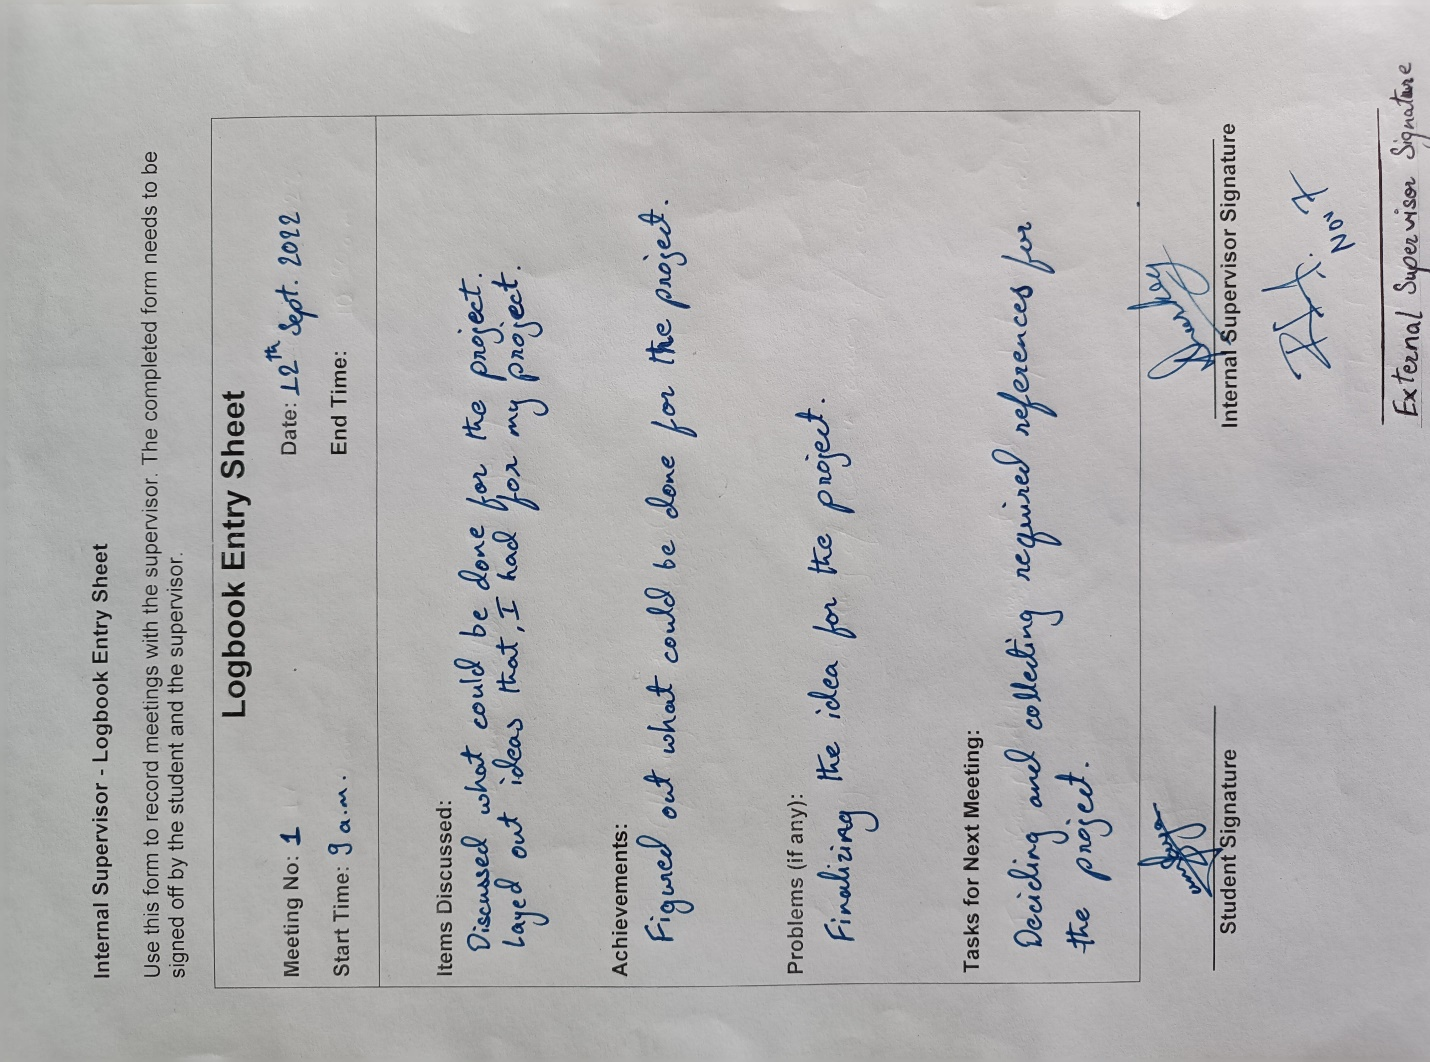 Internal Supervisor - Logbook Entry Sheet
Use this form to record meetings with the supervisor. The completed form needs to be
signed off by the student and the supervisor.
Logbook Entry Sheet
Meeting No: 1 Date: 12th Sept. 2022
Start Time: 9 a.m. End Time:
Items Discussed:
Discussed what could be done for the project.
Layed out ideas that, I had for my project.
Achievements:
Figured out what could be done for the project.
Problems (if any):
Finalizing the idea for the project.
Tasks for Next Meeting:
Deciding and collecting required references for
the project.
Student Signature Internal Supervisor Signature
Nov 7
External Supervisor Signature